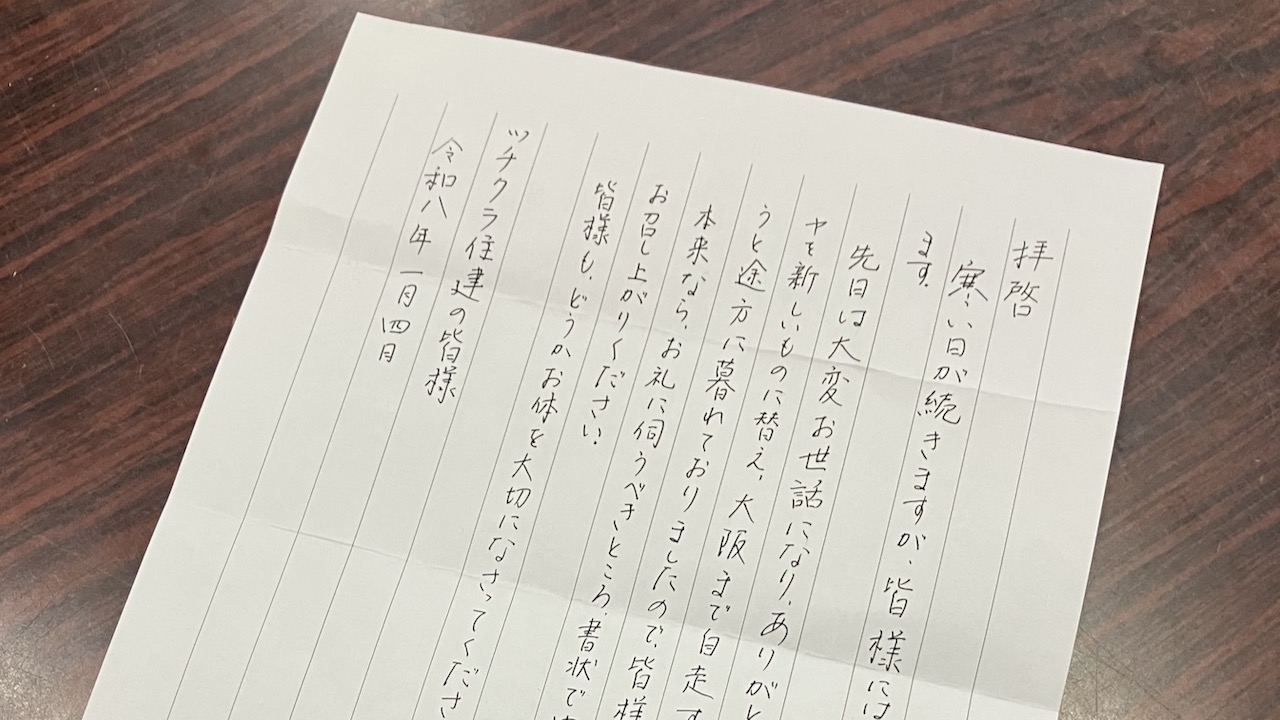 拝啓
寒い日が続きますが、皆様には
ます。
先日は大変お世話になり、ありがと
ヤを新しいものに替え、大阪まで自走す
うと途方に暮れておりましたので、皆様
本来なら、お礼に伺うべきところ、書状で
お召し上がりください。
皆様も、どうかお体を大切になさってくださ
ツチクラ住建の皆様
令和八年一月四日